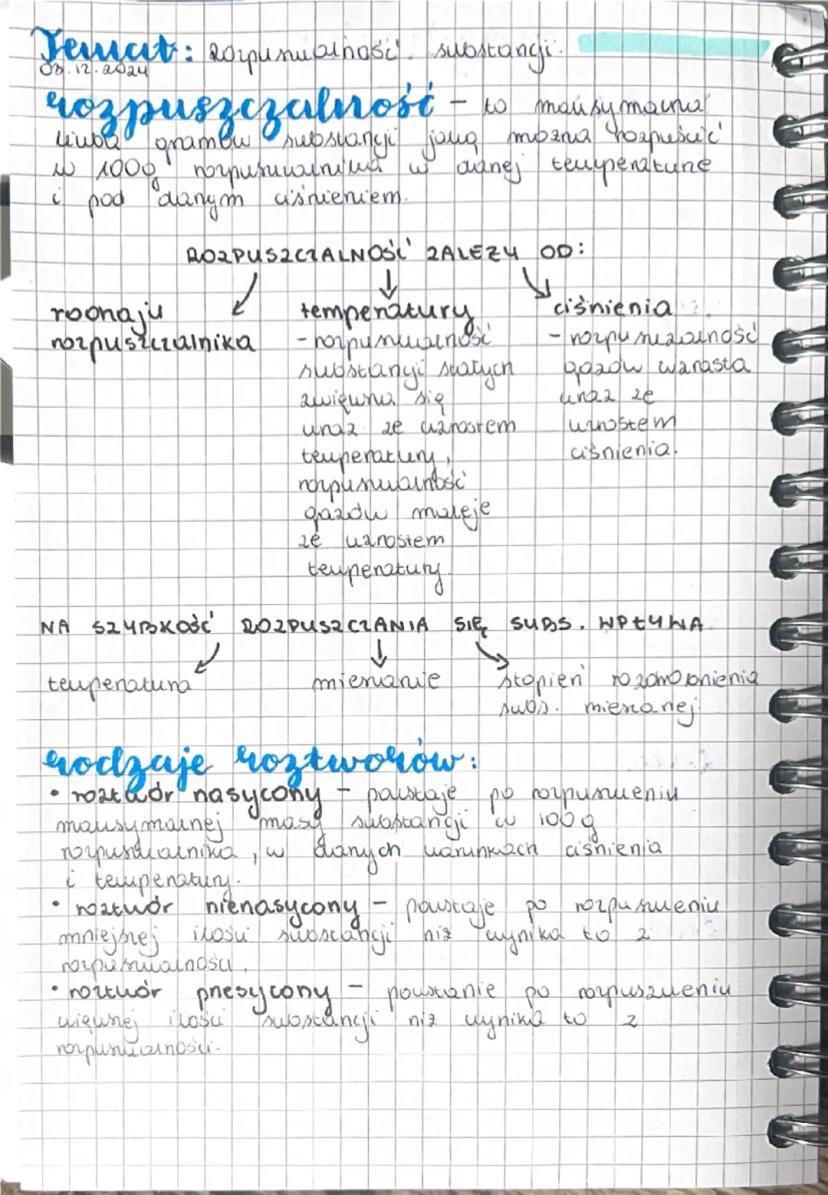 Temat: rozpuszczalność substancji.
03.12.2024
rozpuszczalność – to maksymalna
liczba gramów substancji jaką można rozpuścić
w 100g rozpuszczalnika w danej temperaturze
i pod danym ciśnieniem.
ROZPUSZCZALNOŚĆ ZALEŻY OD:
rodzaju temperatury ciśnienia
rozpuszczalnika - rozpuszczalność - rozpuszczalność
substancji stałych gazów wzrasta
zwiększa się wraz ze
wraz ze wzrostem wzrostem
temperatury, ciśnienia.
rozpuszczalność
gazów maleje
ze wzrostem
temperatury
NA SZYBKOŚĆ ROZPUSZCZANIA SIĘ SUBS. WPŁYWA
temperatura mieszanie stopień rozdrobnienia
subs. mieszanej
rodzaje roztworów:
• roztwór nasycony – powstaje po rozpuszczeniu
maksymalnej masy substancji w 100g
rozpuszczalnika, w danych warunkach ciśnienia
i temperatury.
• roztwór nienasycony – powstaje po rozpuszczeniu
mniejszej ilości substancji niż wynika to z
rozpuszczalności.
• roztwór przesycony – powstanie po rozpuszczeniu
większej ilości substancji niż wynika to z
rozpuszczalności.